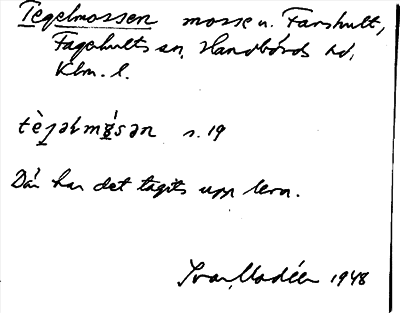 Tegelmossen mosse n. Farshult,
Fagehults sn, Handbörds hd,
Klm. l.
tè̱gəlmó̱sən s. 19
Där har det tagits upp lera.
Ivar Modéer 1948